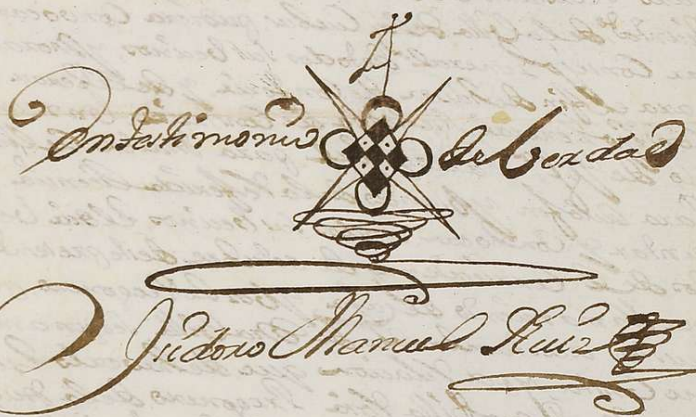 En testimonio de Verdad
Isidoro Manuel Ruiz